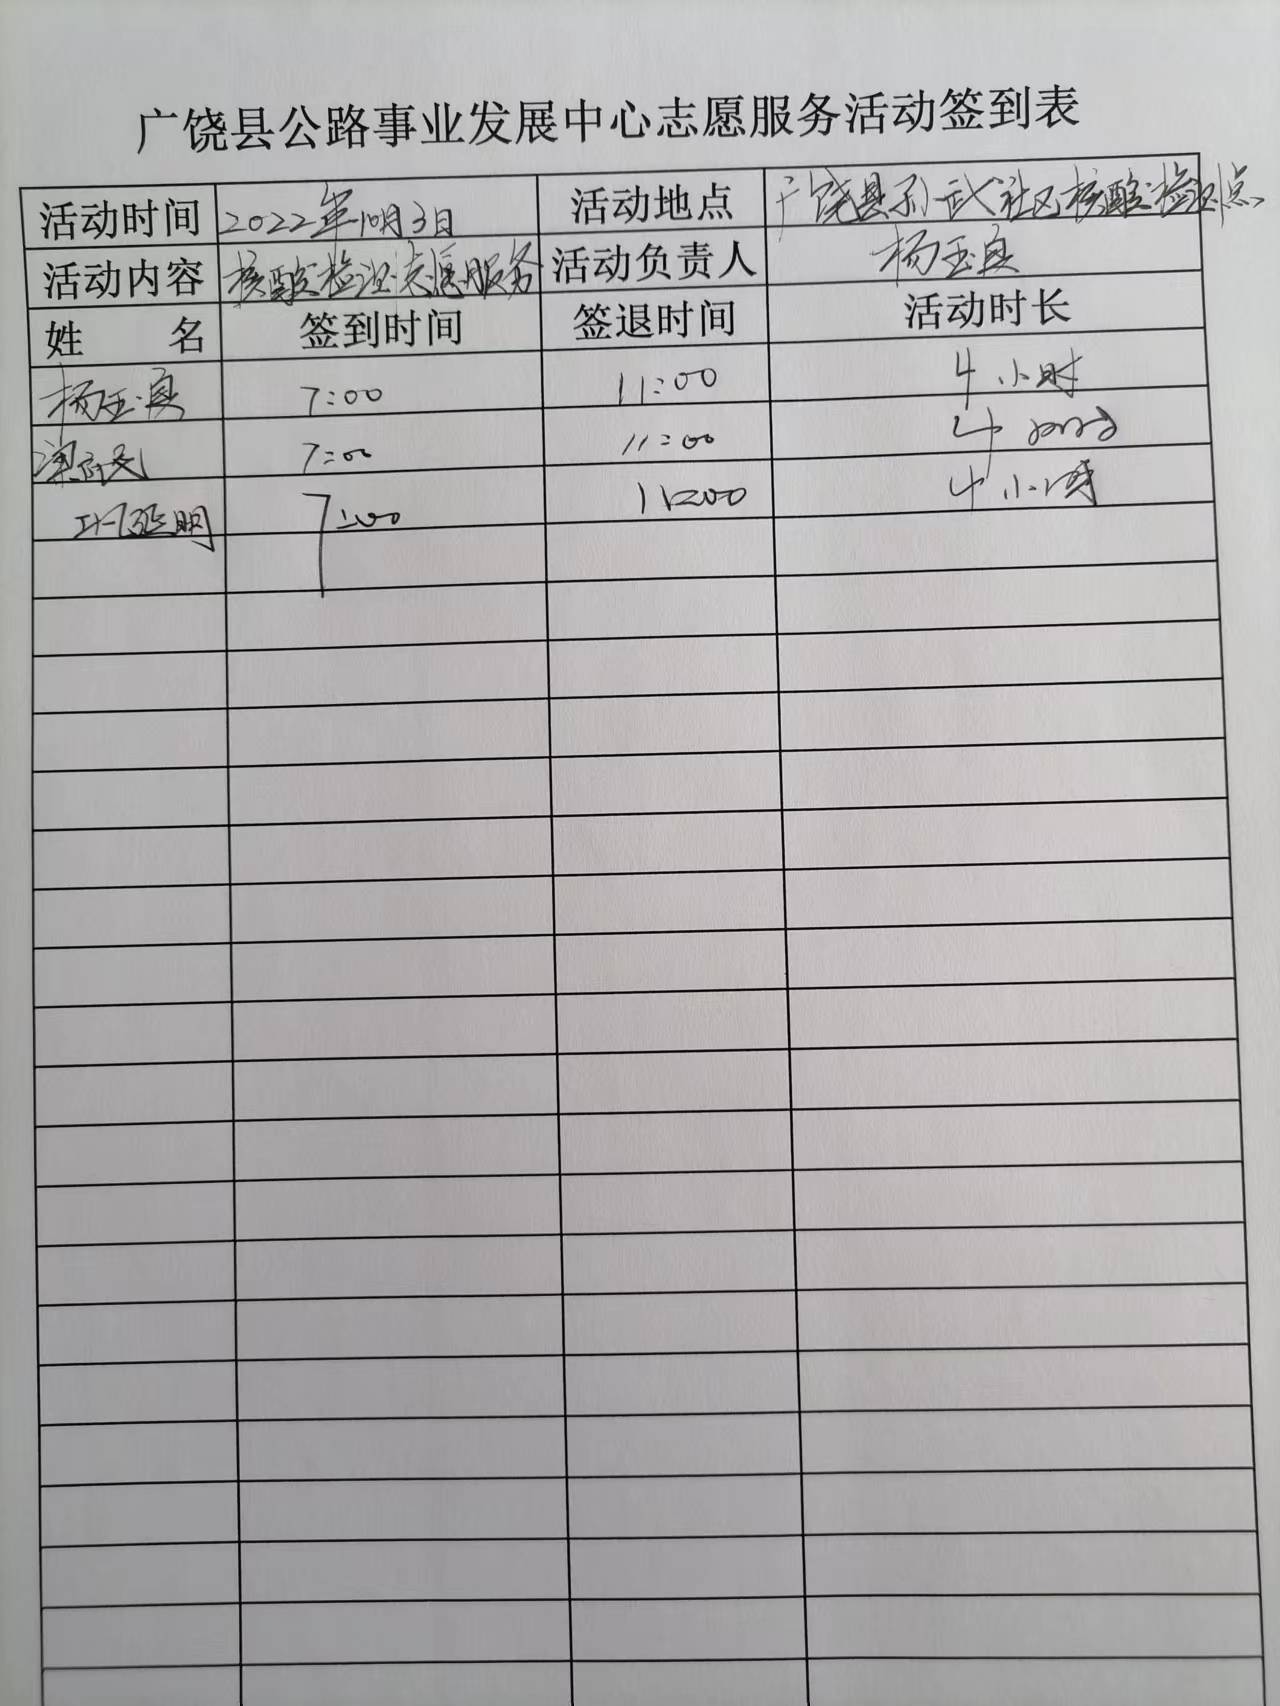 广饶县公路事业发展中心志愿服务活动签到表
活动时间 2022年10月3日 活动地点 广饶县孙武社区核酸检测点
活动内容 核酸检测志愿服务 活动负责人 杨玉真
姓 名 签到时间 签退时间 活动时长
杨玉真 7:00 11:00 4小时
7:00 11:00 4小时
7:00 11:00 4小时